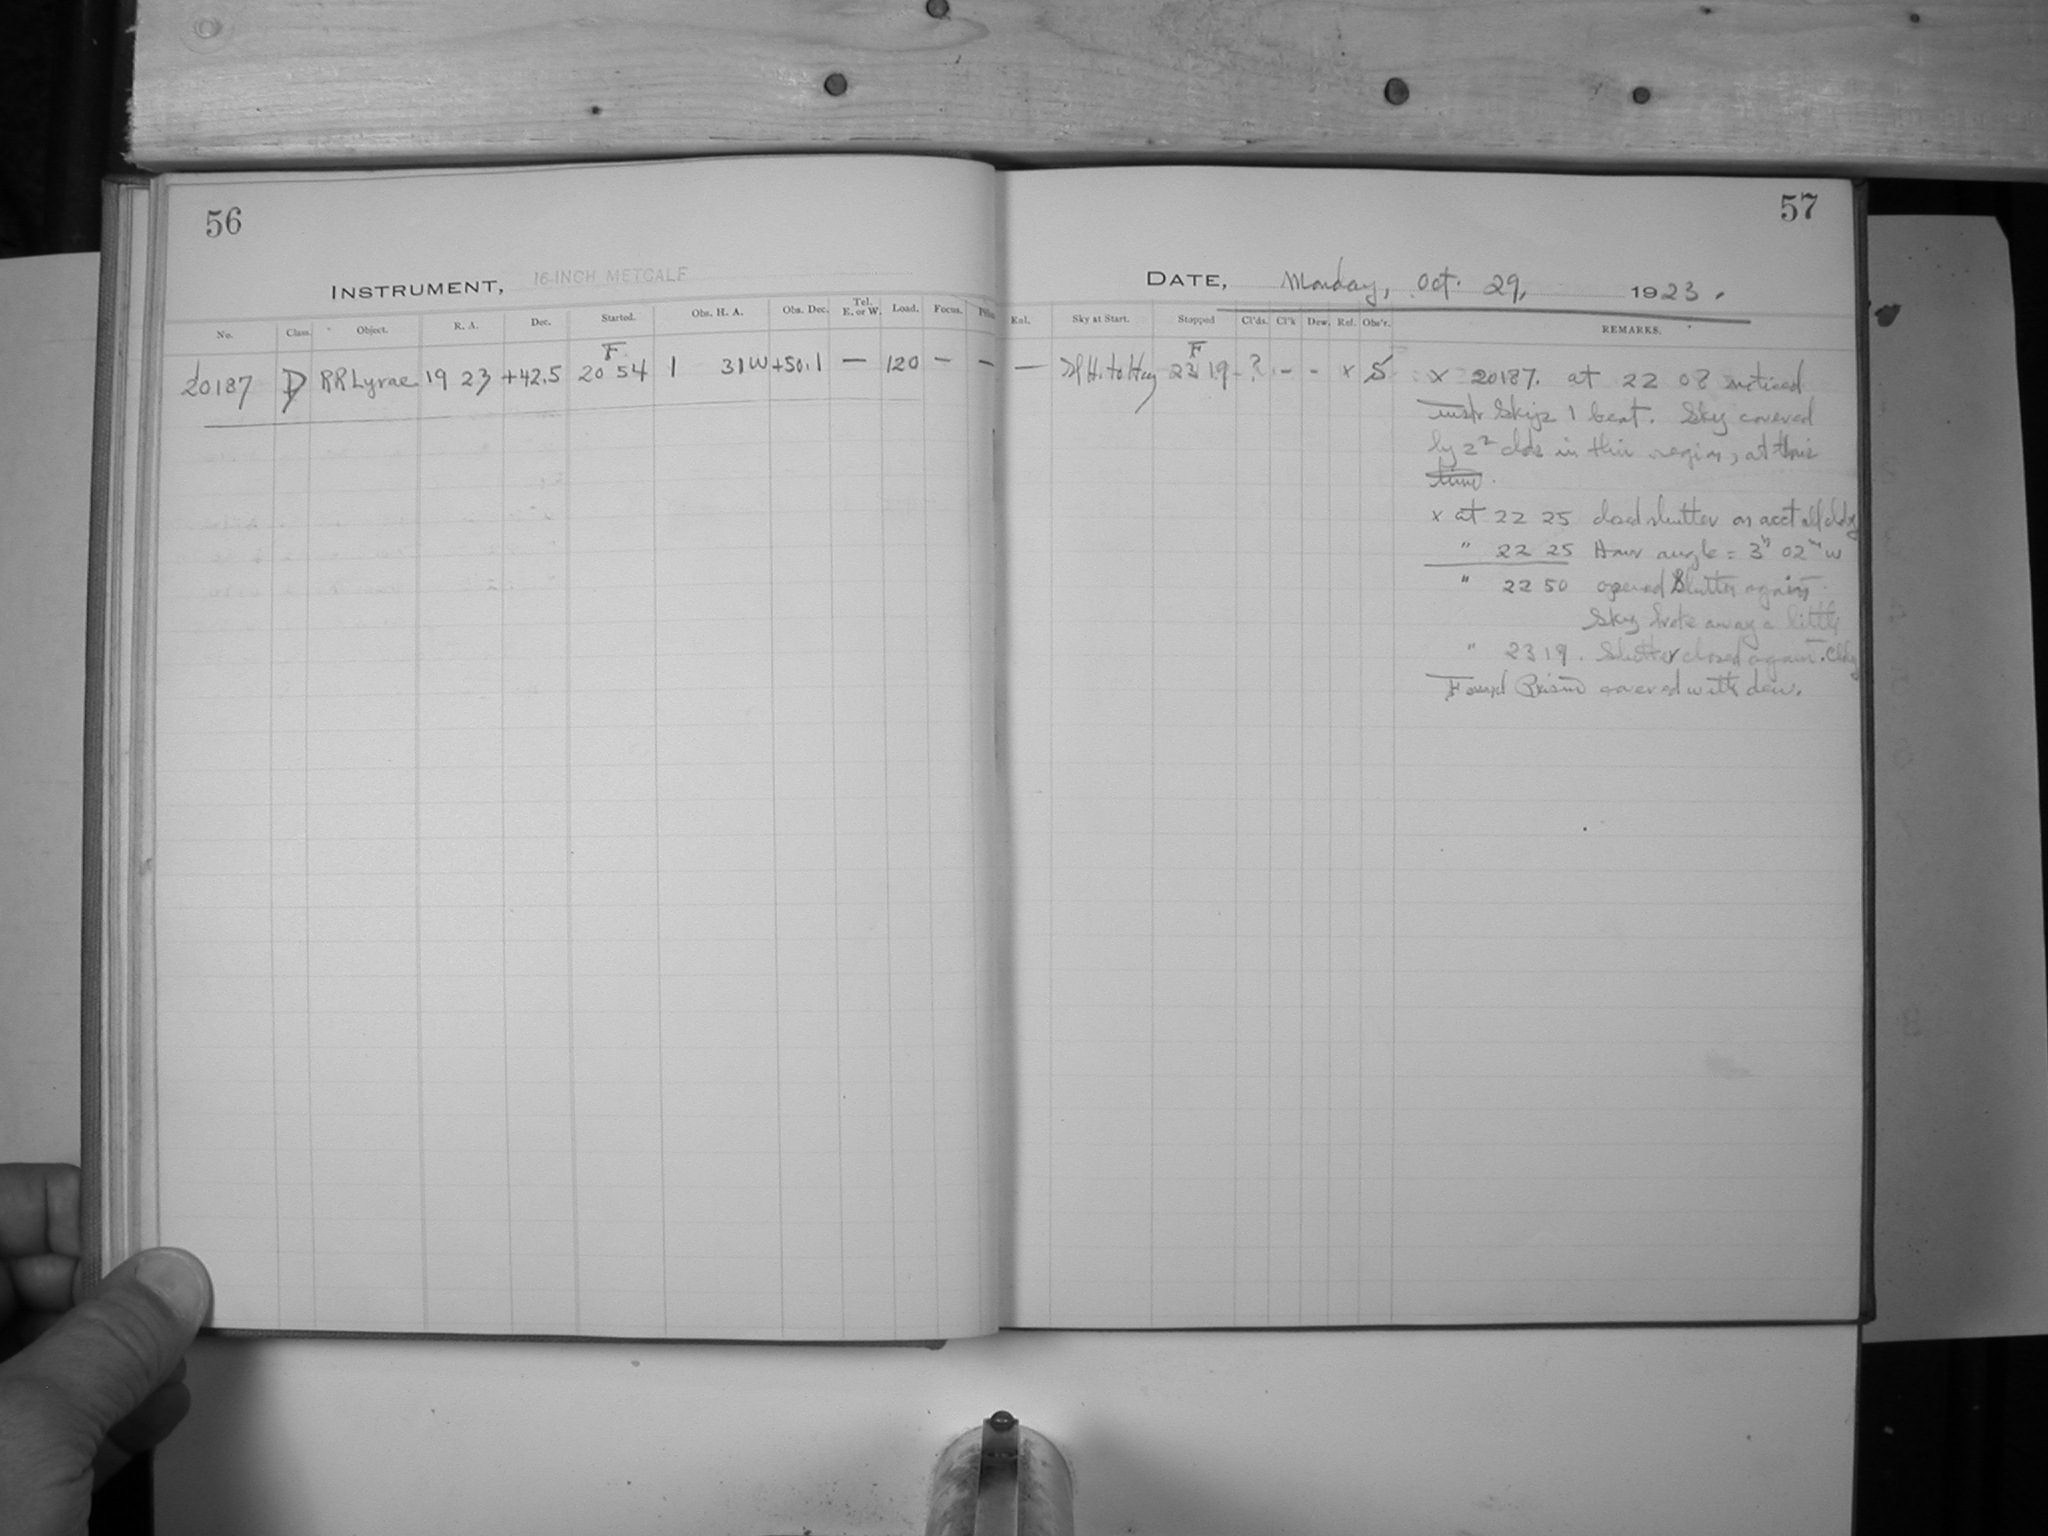 56
57
INSTRUMENT, 16-INCH METCALF
DATE, Monday, Oct. 29, 1923.
No. Class. Object. R. A. Dec. Started. Obs. H. A. Obs. Dec. Tel. E. or W. Load. Focus.
Sky at Start. Stopped Cl'ds. Cl'k Dew. Rel. Obs'r. REMARKS.
20187 D RR Lyrae 19 23 +42.5 F. 20 54 1 31W +50.1 — 120 — —
— H. to Hzy F 23 19 ? - - x S
x 20187. at 22 08 noticed
instr skips 1 beat. Sky covered
by 2² clds in this region, at this
time.
x at 22 25 closed shutter on acct all cldy
" 22 25 Hour angle = 3ʰ 02ᵐ W
" 22 50 opened Shutter again.
Sky broke away a little
" 23 19. Shutter closed again. Cldy
Found Prism covered with dew.